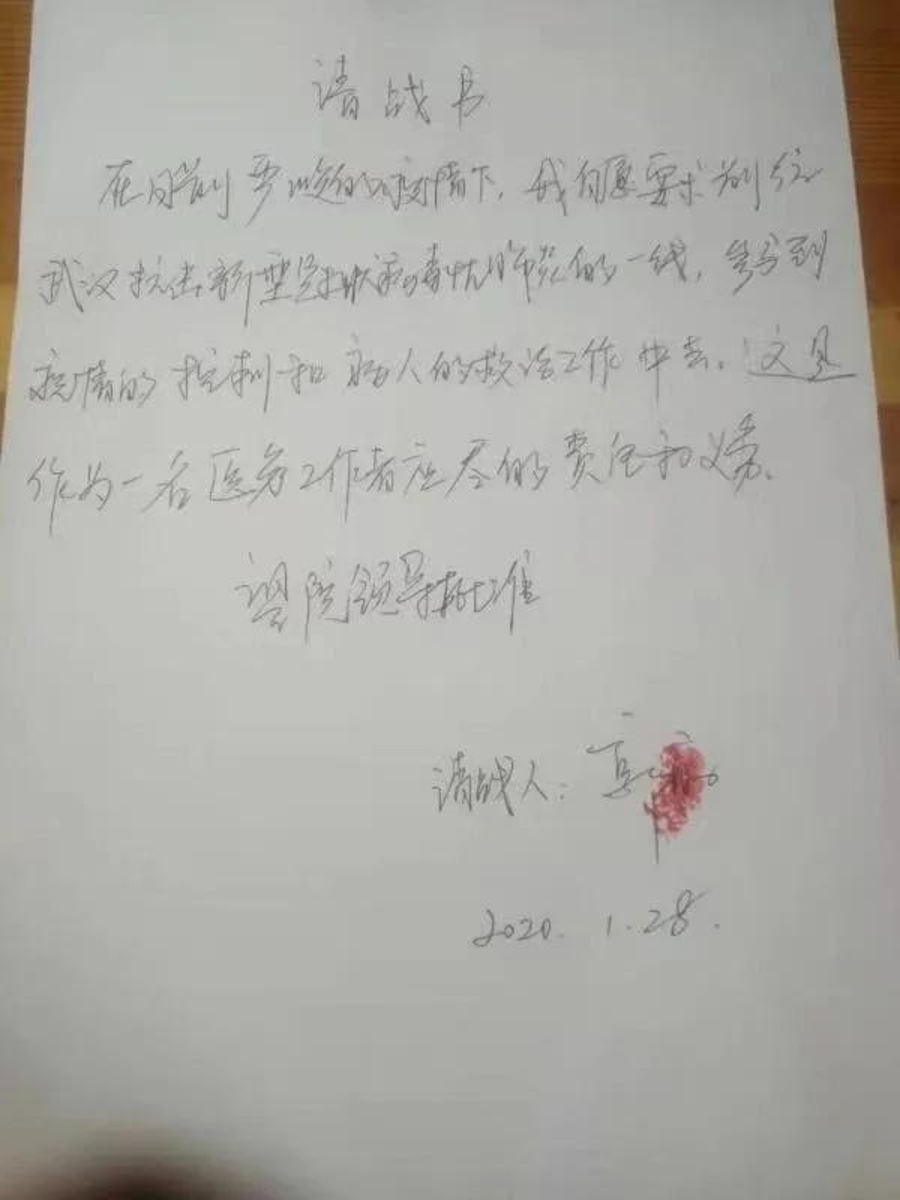 请战书
在目前严峻的疫情下,我自愿要求前往
武汉抗击新型冠状病毒性肺炎的一线,参与到
疫情的控制和病人的救治工作中去。这是
作为一名医务工作者应尽的责任和义务。
望院领导批准
请战人:
2020.1.28.